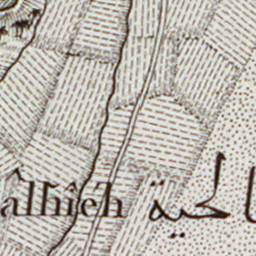 âlhîéh الحية